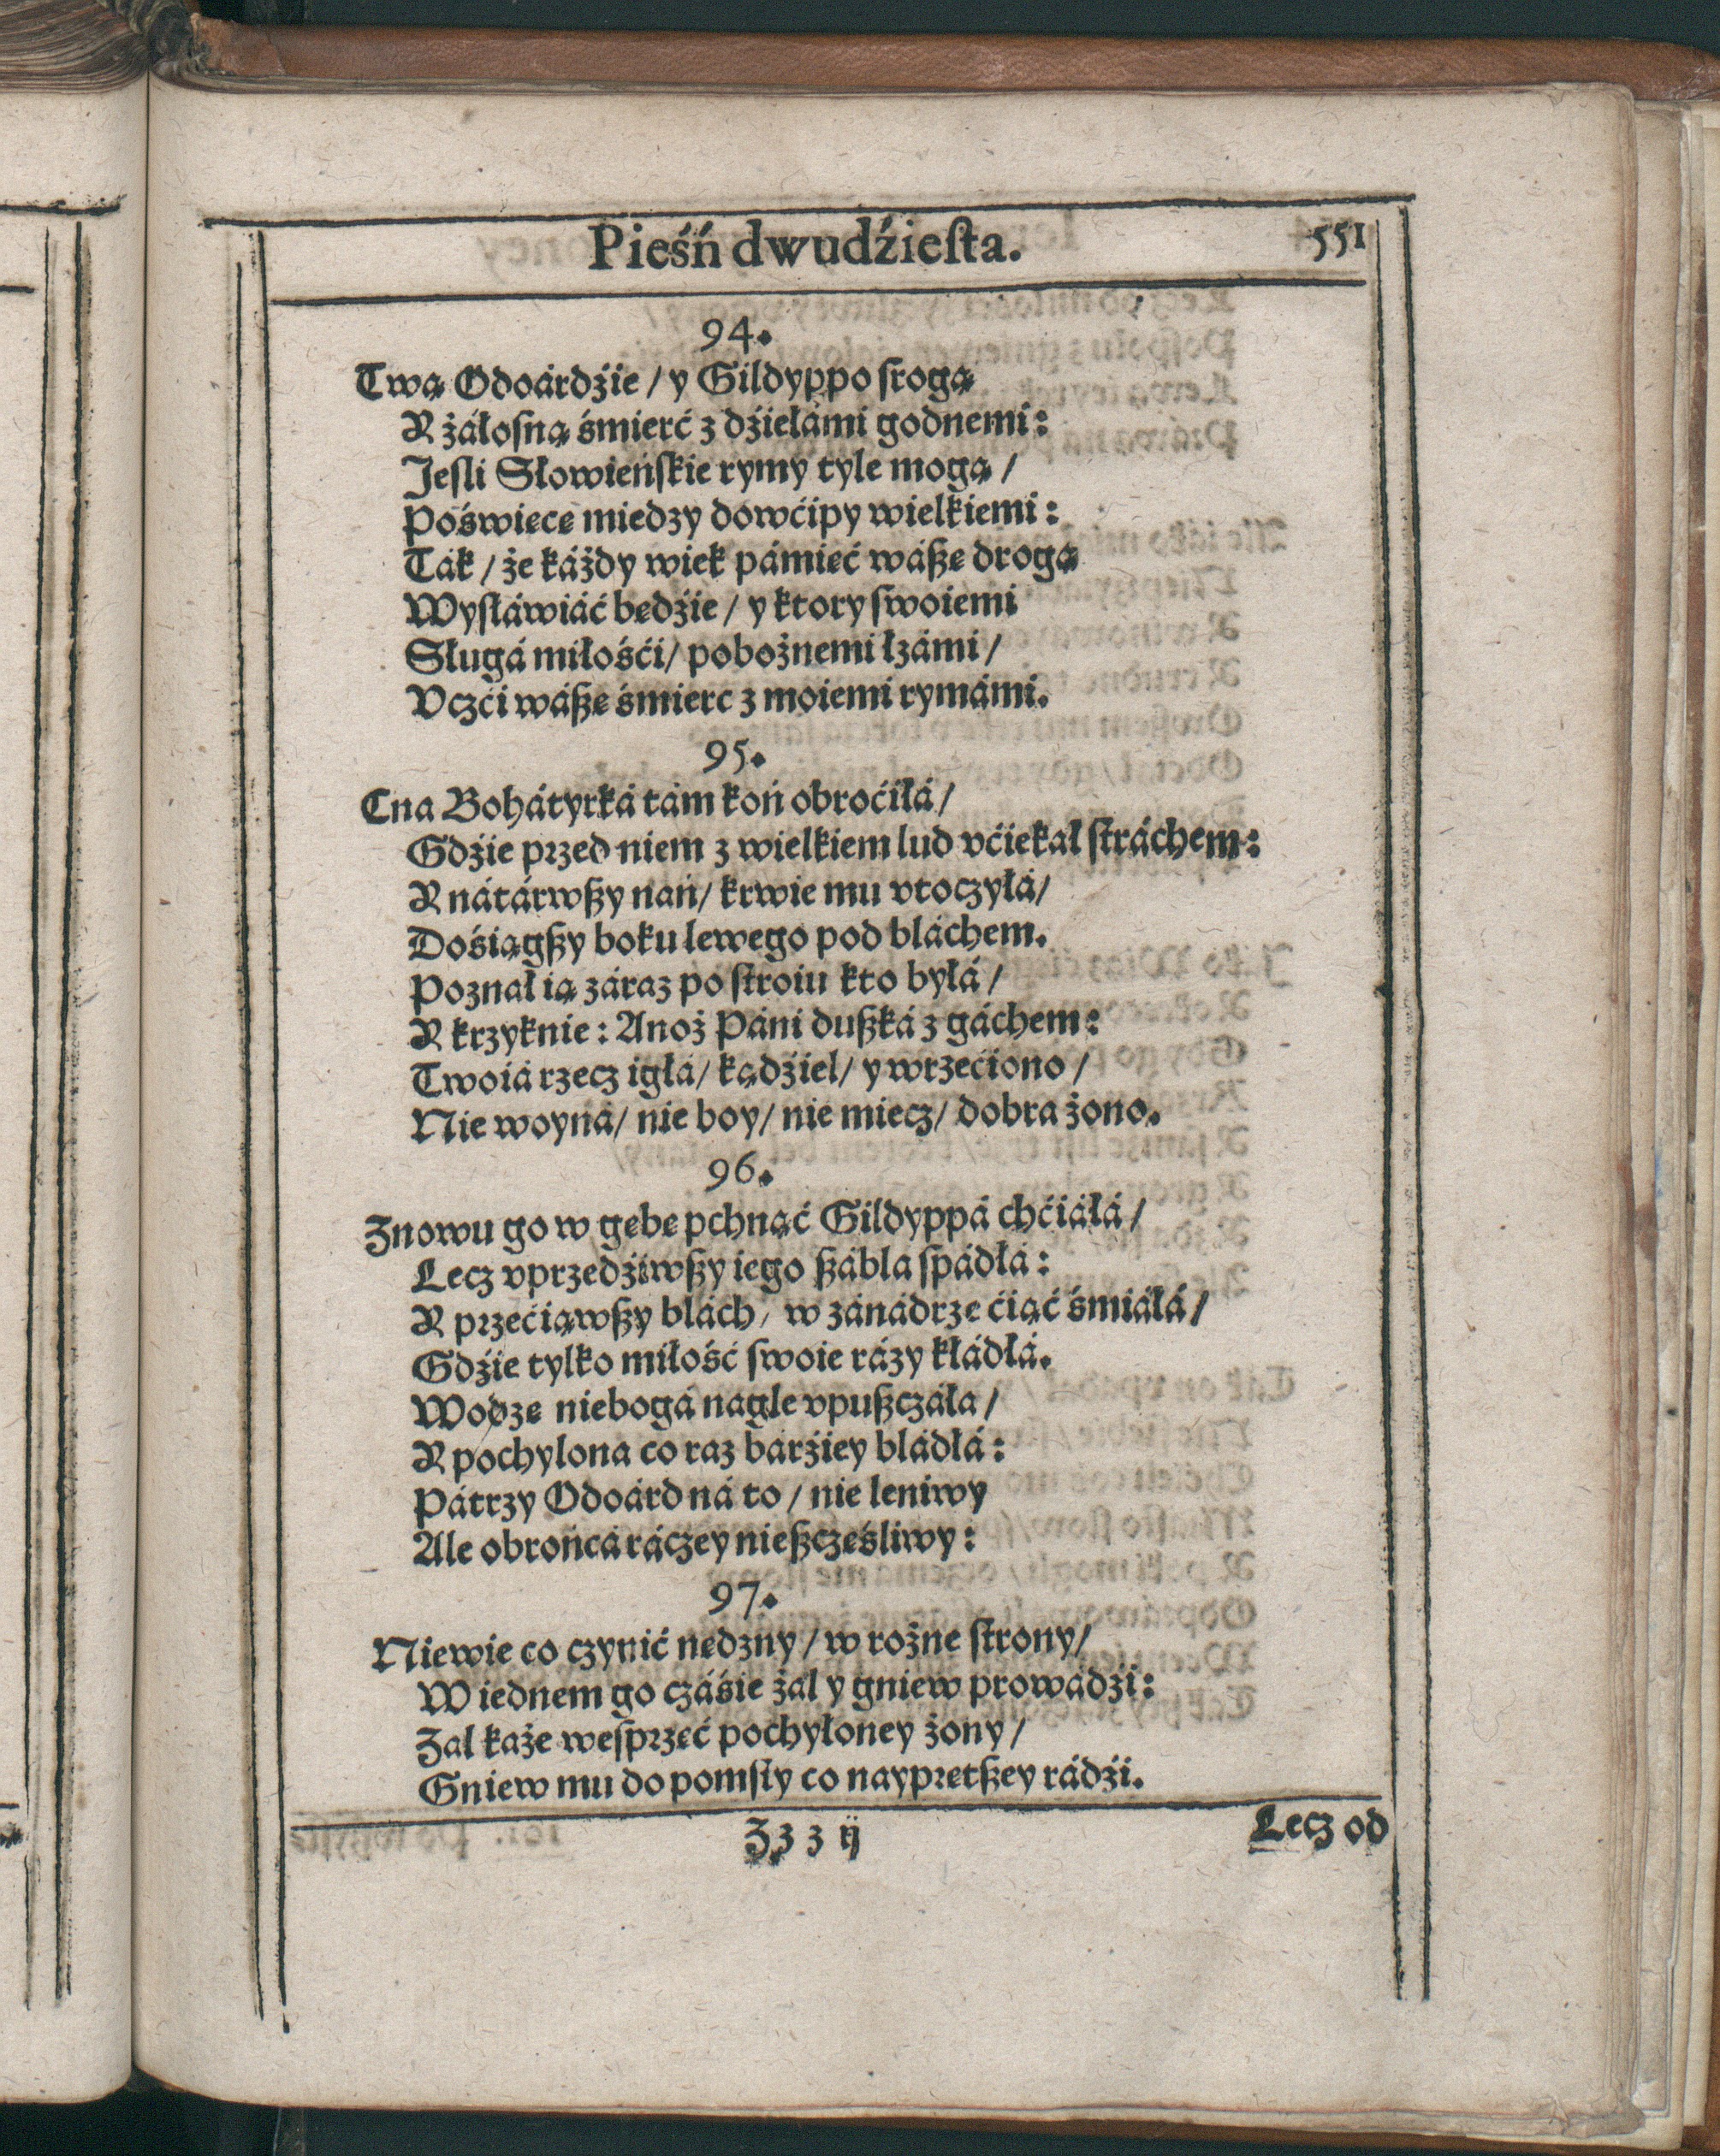 Pieśń dwudźieſta.
551
94.
Twą Odoárdźie / y Gildyppo ſrogą
Y żáłoſną śmierć z dźiełámi godnemi:
Jeſli Słowieńſkie rymy tyle mogą /
Poświęcę miedzy dowćipy wielkiemi:
Ták / że káżdy wiek pámięć wáßę drogą
Wyſłáwiáć będźie / y ktory ſwoiemi
Sługá miłośći / pobożnemi łzámi /
Vczći wáßę śmierc z moiemi rymámi.
95.
Cna Bohátyrká tám koń obroćiłá /
Gdźie przed niem z wielkiem lud vćiekał ſtráchem:
Y nátárwßy nań / krwie mu vtoczyłá /
Dośiągßy boku lewego pod bláchem.
Poznał ią záraz po ſtroiu kto byłá /
Y krzyknie: Anoż Páni dußká z gáchem:
Twoiá rzecz igłá / kądźiel / y wrzećiono /
Nie woyná / nie boy / nie miecz / dobra żono.
96.
Znowu go w gębę pchnąć Gildyppá chćiáłá /
Lecz vprzedźiwßy iego ßábla ſpádłá:
Y przećiąwßy blách / w zánádrze ćiąć śmiáłá /
Gdźie tylko miłość ſwoie rázy kłádłá.
Wodze niebogá nagle vpußczáła /
Y pochylona co raz bárźiey bládłá:
Pátrzy Odoárd ná to / nie leniwy
Ale obrońcá ráczey nießczęśliwy:
97.
Niewie co czynić nędzny / w rożne ſtrony /
W iednem go czáśie żal y gniew prowádźi:
Zal każe weſprzeć pochyłoney żony /
Gniew mu do pomſty co nayprętßey rádźi.
Zzz ij
Lecz od